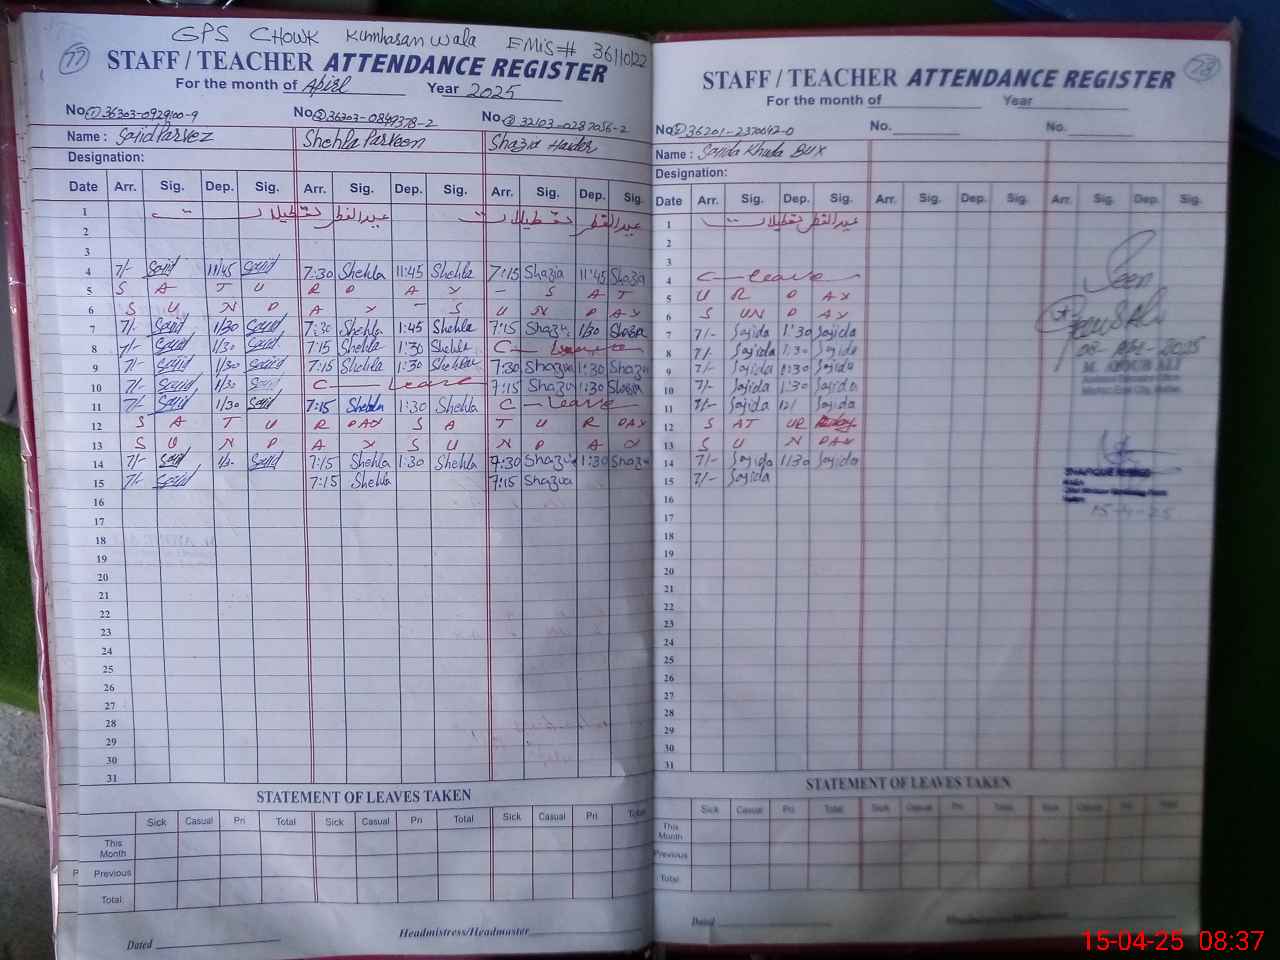 77
GPS CHOWK Kumhasan Wala EMIS# 36110122
STAFF / TEACHER ATTENDANCE REGISTER
For the month of Apirl Year 2025
No. ① 36303-0929100-9 No. ② 36303-0849378-2 No. ③ 32103-0287056-2
Name : Sajid Parvez Shehla Parveen Shazia Haider
Designation:
Date Arr. Sig. Dep. Sig. Arr. Sig. Dep. Sig. Arr. Sig. Dep. Sig.
1 عید الفطر تعطیلات عید الفطر تعطیلات
2
3
4 7/- Sajid 11/45 Sajid 7:30 Shehla 11:45 Shehla 7:15 Shazia 11:45 Shazia
5 S A T U R D A Y - S A T
6 S U N D A Y - S U N D A Y
7 7/- Sajid 1/30 Sajid 7:30 Shehla 1:45 Shehla 7:15 Shazia 1:30 Shazia
8 7/- Sajid 1/30 Sajid 7:15 Shehla 1:30 Shehla C - leave
9 7/- Sajid 1/30 Sajid 7:15 Shehla 1:30 Shehla 7:30 Shazia 1:30 Shazia
10 7/- Sajid 1/30 Sajid C - Leave 7:15 Shazia 1:30 Shazia
11 7/- Sajid 1/30 Sajid 7:15 Shehla 1:30 Shehla C - leave
12 S A T U R DAY S A T U R DAY
13 S U N D A Y S U N D A Y
14 7/- Sajid 1/30 Sajid 7:15 Shehla 1:30 Shehla 7:30 Shazia 1:30 Shazia
15 7/- Sajid 7:15 Shehla 7:15 Shazia
16
17
18
19
20
21
22
23
24
25
26
27
28
29
30
31
STATEMENT OF LEAVES TAKEN
Sick Casual Pri Total Sick Casual Pri Total Sick Casual Pri Total
This Month
P Previous
Total
Dated Headmistress/Headmaster
78
STAFF / TEACHER ATTENDANCE REGISTER
For the month of Year
No. ④ 36201-2370642-0 No. No.
Name : Sajida Khuda BUX
Designation:
Date Arr. Sig. Dep. Sig. Arr. Sig. Dep. Sig. Arr. Sig. Dep. Sig.
1 عید الفطر تعطیلات
2
3
4 C - leave
5 U R D AY
6 S UN D AY
7 7/- Sajida 1:30 Sajida
8 7/- Sajida 1:30 Sajida
9 7/- Sajida 1:30 Sajida
10 7/- Sajida 1:30 Sajida
11 7/- Sajida 12/ Sajida
12 S AT UR
13 S U N DAY
14 7/- Sajida 1/30 Sajida
15 7/- Sajida
16
17
18
19
20
21
22
23
24
25
26
27
28
29
30
31
Seen
08- APR -2025
M. AYOUB ALI
15-4-25
STATEMENT OF LEAVES TAKEN
Sick Casual Pri Total Sick Casual Pri Total Sick Casual Pri Total
This Month
Previous
Total
Dated Headmistress/Headmaster
15-04-25 08:37